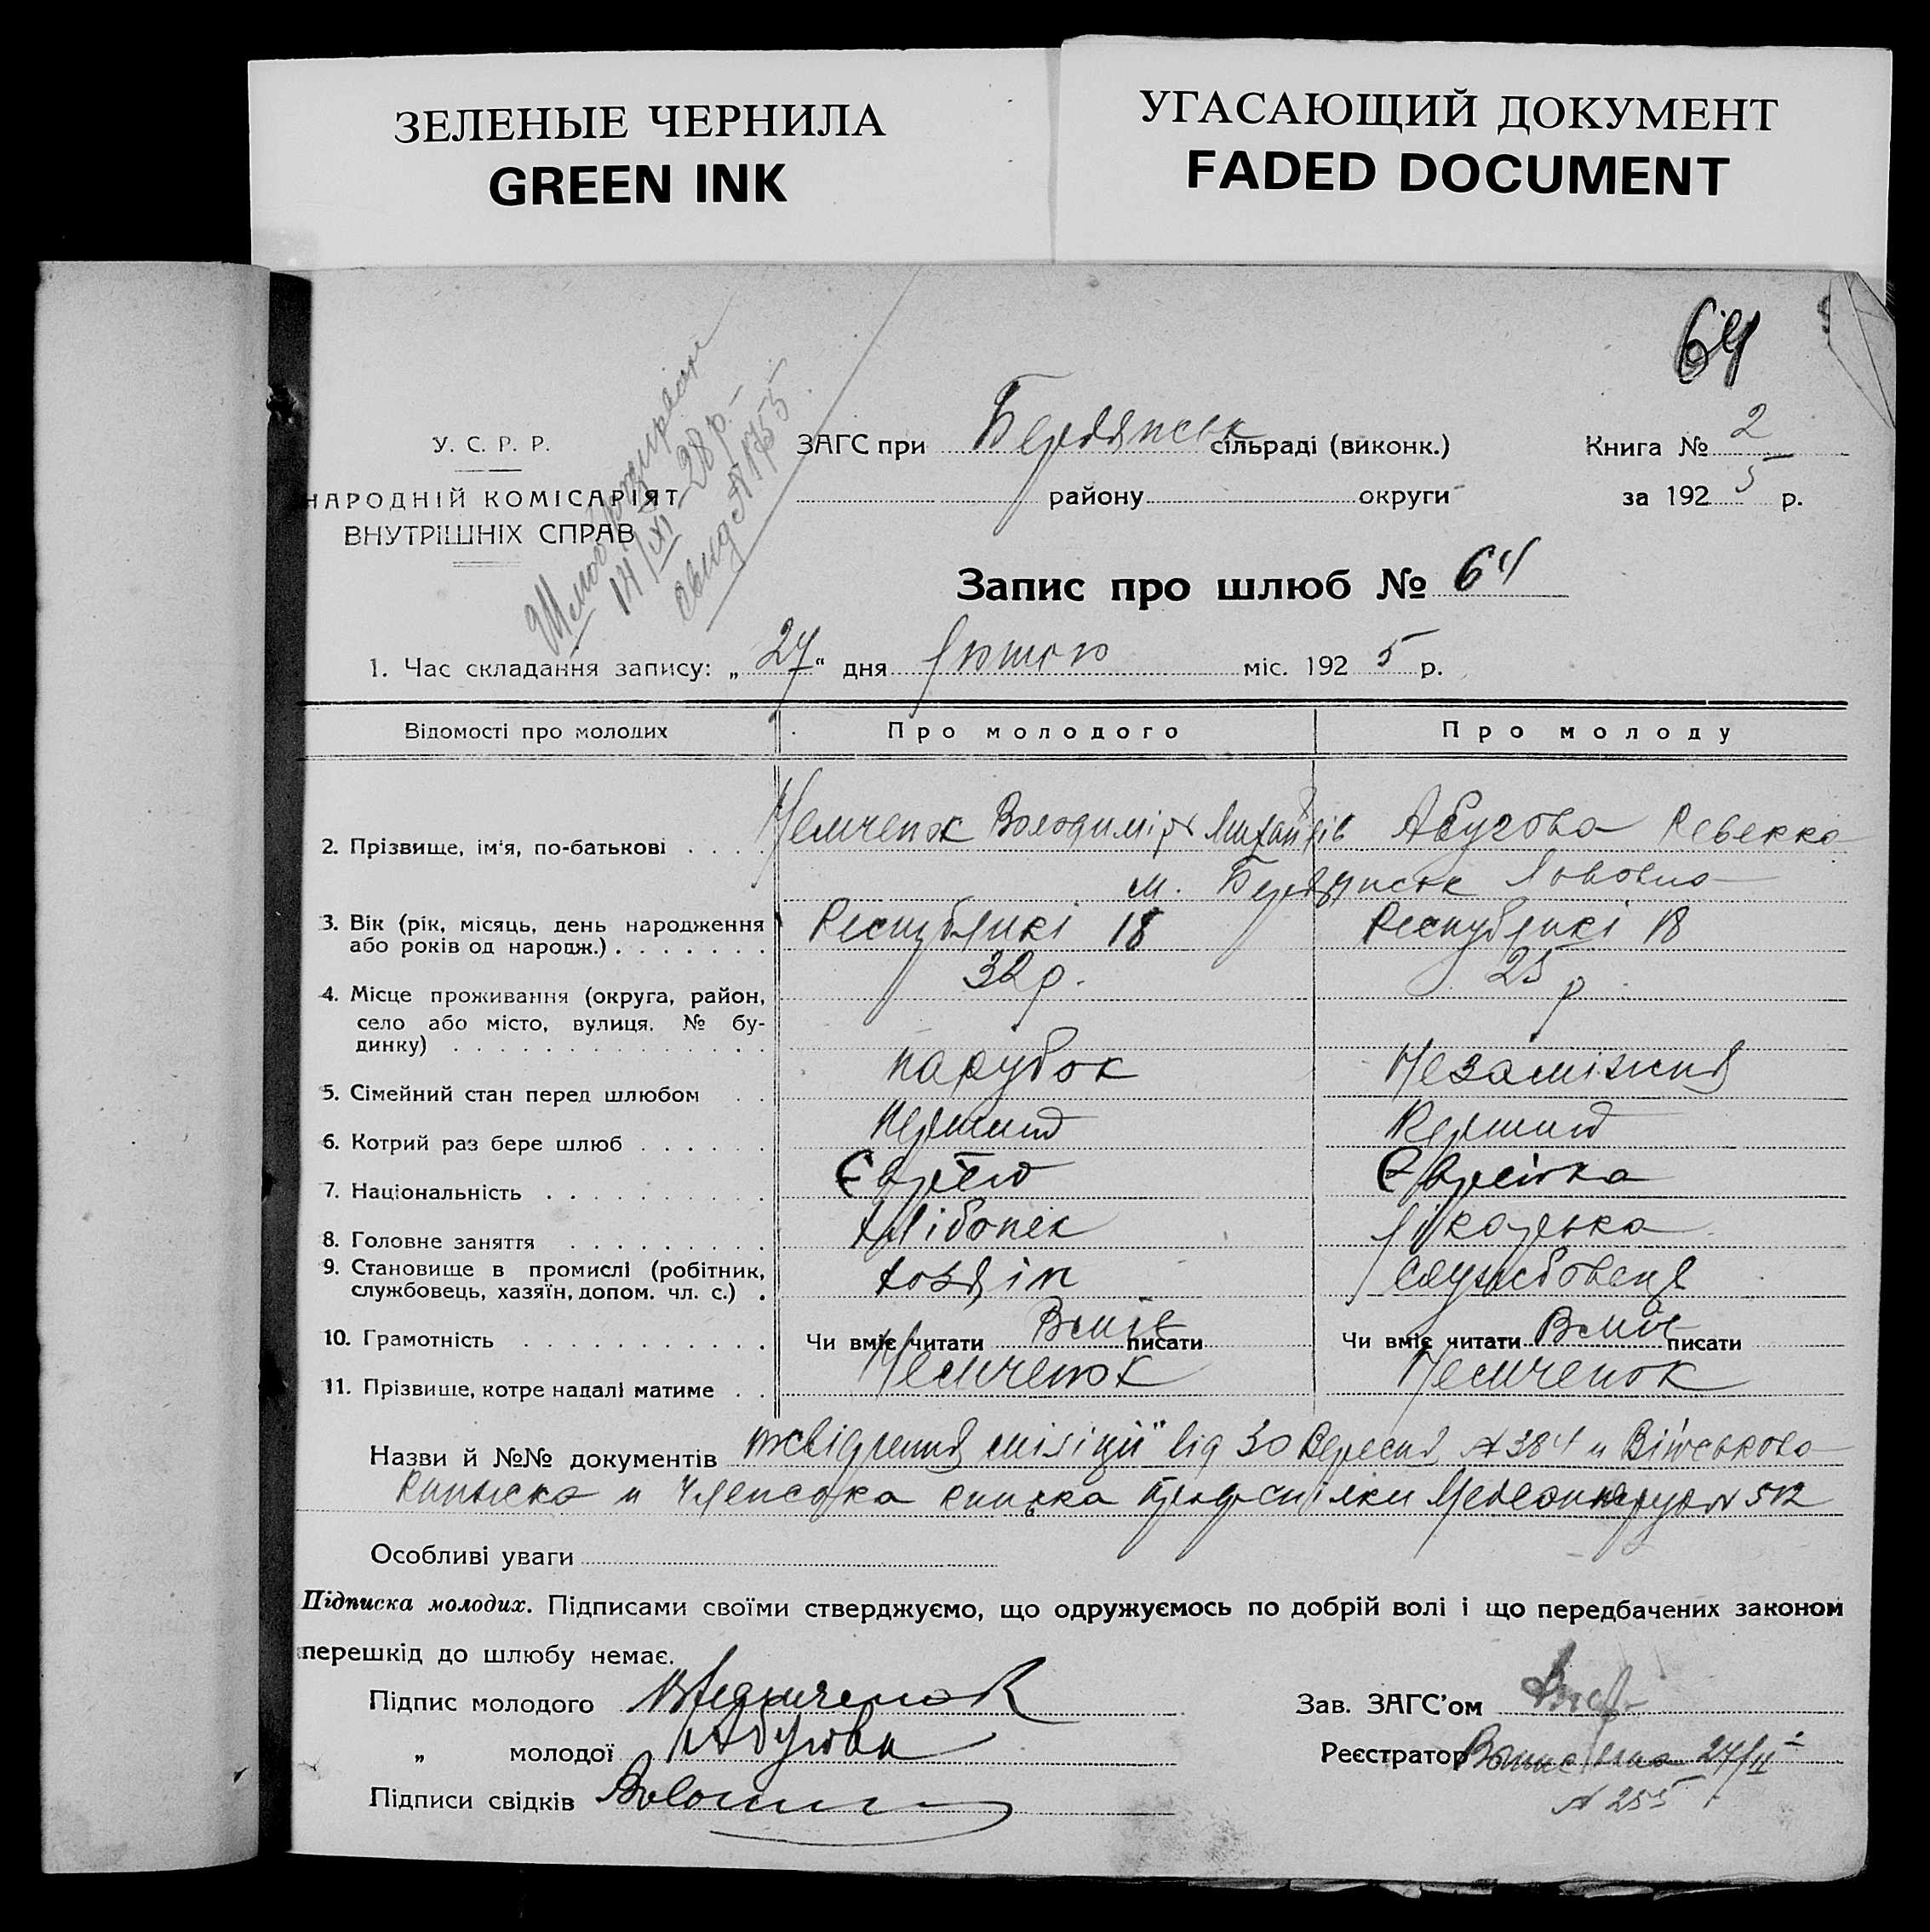 ЗЕЛЕНЫЕ ЧЕРНИЛА
GREEN INK
УГАСАЮЩИЙ ДОКУМЕНТ
FADED DOCUMENT
64
У. С. Р. Р.
НАРОДНІЙ КОМІСАРІЯТ
ВНУТРІШНІХ СПРАВ
Шлюб
14/XI-28 р.
свид № 1755
ЗАГС при Бердянськ сільраді (виконк.)
району округи
Книга № 2
за 1925 р.
Запис про шлюб № 64
1. Час складання запису: „27“ дня лютого міс. 1925 р.
Відомості про молодих Про молодого Про молоду
2. Прізвище, ім'я, по-батькові . . . . Немченок Володимір Михайлів Абугова Ревекка
м. Бердянськ Львовна
3. Вік (рік, місяць, день народження або років од народж.) . . . . . . . Республікі 18 Республікі 18
32 р. 25 р
4. Місце проживання (округа, район, село або місто, вулиця, № будинку) . . . . . . . . . . . . . .
5. Сімейний стан перед шлюбом . . парубок Незаміжня
6. Котрий раз бере шлюб . . . . . . Перший Перший
7. Національність . . . . . . . . . . Єврей Єврейка
8. Головне заняття . . . . . . . . . Хлібопек Лікарька
9. Становище в промислі (робітник, службовець, хазяїн, допом. чл. с.) . хозяїн службовець
10. Грамотність . . . . . . . . . . . Чи вміє читати Вміє писати Чи вміє читати Вміє писати
11. Прізвище, котре надалі матиме . . Немченок Немченок
Назви й №№ документів посвідчення міліції від 30 Вересня № 384 и Військова
книжка и Членська книжка профспілки № 512
Особливі уваги
Підписка молодих. Підписами своїми стверджуємо, що одружуємось по добрій волі і що передбачених законом
перешкід до шлюбу немає.
Підпис молодого В Немченок
„ молодої Абугова
Підписи свідків
Зав. ЗАГС'ом
Реєстратор 27/II
№ 255